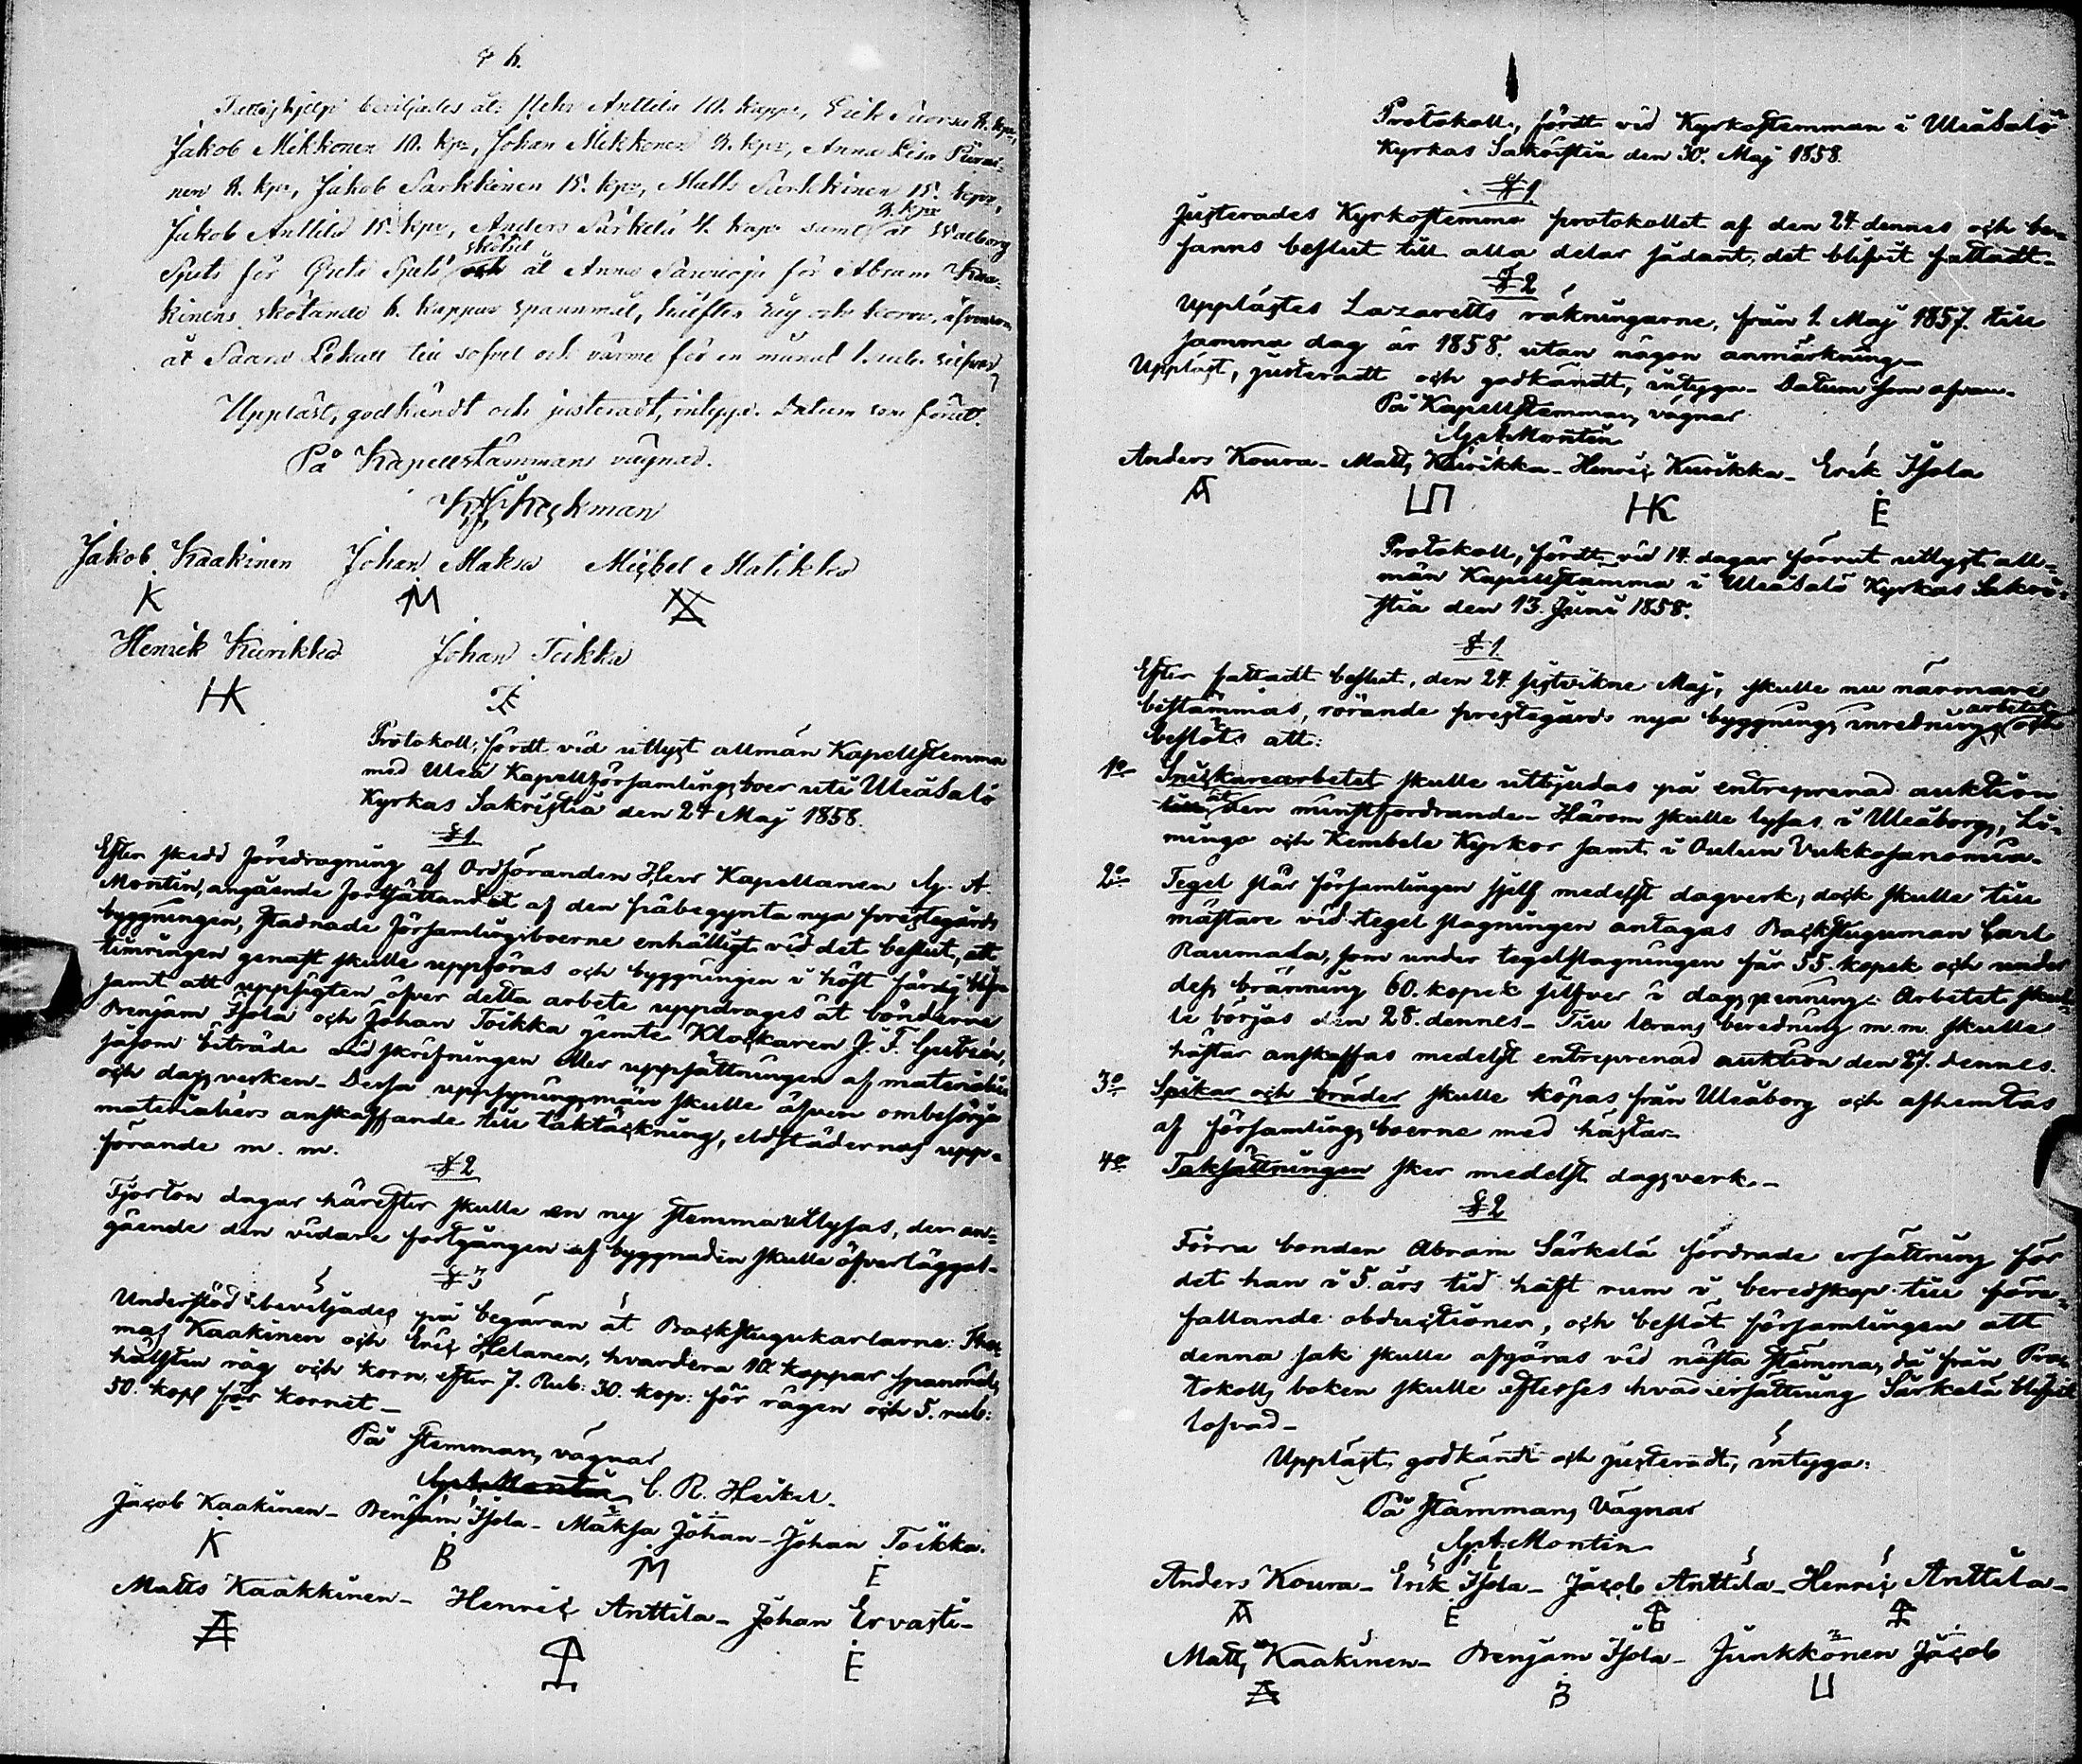 § 6.
Fattighjelp beviljades åt: Anttila 10. kappr, Erik 8. kpr,
Jakob Mikkonen 10. kpr, Johan Mikkonen 8. kpr, Anna Lisa Pierai-
nen 8. kpr, Jakob Sarkkinen 15. kpr, Matts Sarkkinen 15. kpr,
Jakob Anttila 15. kpr, Anders Särkelä 4. kapr samt 2. kpr åt Walborg
Spets för Greta Spets skötsel och åt Anna för Abram Kaa-
kinens skötande 6. kappar spannmål, hälften råg och korn, äfvensom
åt Saara till sofvel och värme för en månad 1. rub. silfver,
Uppläst, godkändt och justeradt, intyga. Datum som förut.
På Kapellstämmans vägnar.
Heckman
Jakob Kaakinen Johan Maksa Michel Matikka
K M
Henrik Kurikka Johan Toikka
HK
Protokoll, fördt vid utlyst allmän Kapellstemma
med Uleå Kapellförsamlingsboer uti Uleåsalo
Kyrkas Sakristia den 24 Maj 1858.
§ 1
Efter skedd föredragning af Ordföranden Herr Kapellanen G. A.
Montin, angående fortsättandet af den påbegynta nya prestegårds
byggningen, stadnade församlingsboerne enhälligt vid det beslut, att
timringen genast skulle uppföras och byggningen i höst färdig blifva
samt att uppsigten öfver detta arbete uppdrages åt bönderne
Benjam Isola och Johan Toikka jemte Klockaren J. F.
såsom biträde vid skrifningen eller uppsättningen af materialier
och dagsverken. Dessa uppsyningsmän skulle äfven ombesörja
materialiers anskaffande till taktäckning, eldstädernas upp-
förande m. m.
§ 2
Fjorton dagar härefter skulle en ny stemma utlysas, der an-
gående den vidare fortgången af byggnaden skulle öfverläggas.
§ 3
Understöd beviljades på begäran åt Backstugukarlarne: Tho-
mas Kaakinen och Eric Helanen, hvardera 10. kappar spannmål,
hälften råg och korn, efter 7. Rub: 30. kop: för rågen och 5. rub:
50. kop för kornet.
På stemmans vägnar
G. A. Montin C. R. Heikel.
Jacob Kaakinen – Benjam Isola – Maksa Johan – Johan Toikka.
K B M E
Matts Kaakkinen – Henric Anttila – Johan Ervasti –
E
Protokoll, fördt vid Kyrkostemman i Uleåsalo
Kyrkas Sakristia den 30. Maj 1858.
§ 1
Justerades Kyrkostemmo protokollet af den 24 dennes och be-
fanns beslut till alla delar sådant, det blifvit fattadt.
§ 2
Upplästes Lazaretts räkningarne, från 1. Maj 1857. till
samma dag år 1858. utan någon anmärkning.
Uppläst, justeradt och godkändt, intyga. Datum som ofvan.
På Kapellstemmans vägnar
G. A. Montin
Anders Koura – Matts Kurikka – Henric Kurikka – Erik Isola
A HK E
Protokoll, fördt vid 14. dagar förrut utlyst all-
män Kapellstämma i Uleåsalo Kyrkas Sakri-
stia den 13. Juni 1858.
§ 1.
Efter fattadt beslut, den 24 sistvikne Maj, skulle nu närmare
bestämmas, rörande prestegårds nya byggnings inrednings arbetet och
beslöts att:
1o Snickarearbetet skulle utbjudas på entreprenad auktion
till åt den minstfordrande. Härom skulle lysas i Uleåborgs, Li-
mingo och Kembele Kyrkor samt i Oulun Viikkosanomia.
2o Tegel slår församlingen sjelf medelst dagsverk, dock skulle till
mästare vid tegel slagningen antagas Backstuguman Carl
Raumala, som under tegelslagningen får 55. kopek och under
dess bränning 60. kopek silfver i dagspenning. Arbetet skul-
le börjas den 28. dennes. Till lerans beredning m. m. skulle
hästar anskaffas medelst entreprenad auktion den 27. dennes.
3o Spikar och bräder skulle köpas från Uleåborg och afhemtas
af församlingsboerne med hästar.
4o Taksättningen sker medelst dagsverk. –
§ 2
Förra bonden Abram Särkelä fordrade ersättning för
det han i 5. års tid haft rum i beredskap till före-
fallande obductioner, och beslöt församlingen att
denna sak skulle afgöras vid nästa stämma, då från Pro-
tokolls boken skulle efterses hvad ersättning Särkelä blifvit
lofvad –
Uppläst, godkändt och justeradt, intyga:
På Stämmans Vägnar
G. A. Montin
Anders Koura – Erik Isola – Jacob Anttila – Henric Anttila –
A E
Matts Kaakinen – Benjam Isola – Junkkonen Jacob
B U